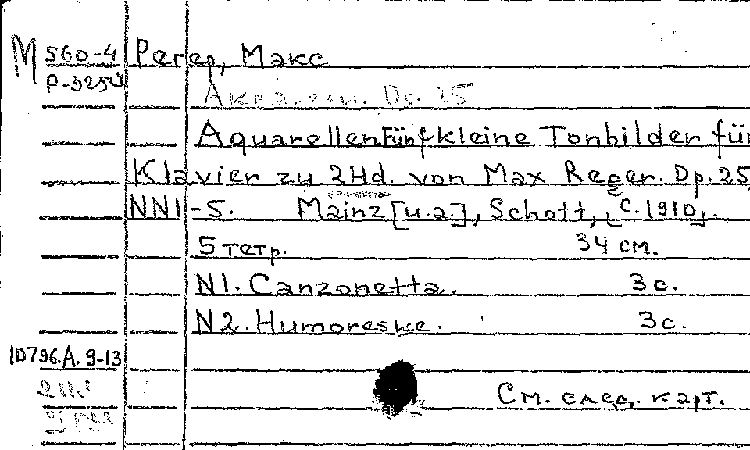 М 560-4 Регер, Макс
Р-325
Акварели. Op. 25
Aquarellen Fünf kleine Tonbilder für
Klavier zu 2Hd. von Max Reger. Op. 25
NN1-5. Mainz [u.a], Schott, [c.1910].
5 тетр. 34 см.
N1. Canzonetta. 3 с.
N2. Humoreske. 3 с.
10796.А.9-13
См. след. карт.